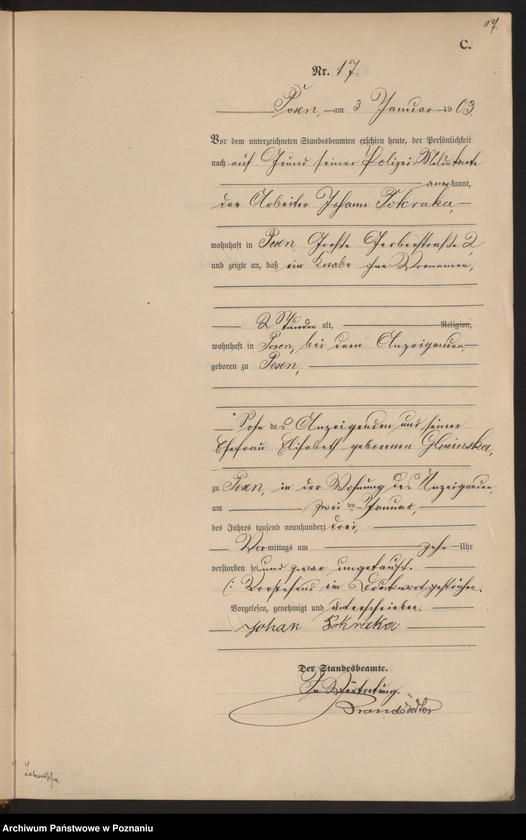 17.
C.
Nr. 17.
Posen, am 3 Januar 1903.
Vor dem unterzeichneten Standesbeamten erschien heute, der Persönlichkeit
nach auf Grund seiner Polizei Meldekarte
anerkannt,
der Arbeiter Johann Pokraka,
wohnhaft in Posen, Große Gerberstraße 2,
und zeigte an, daß ein Knabe ohne Vornamen,
2 Stunden alt, Religion,
wohnhaft in Posen, bei dem Anzeigenden
geboren zu Posen,
Sohn des Anzeigenden und seiner
Ehefrau Elisabeth geborenen Glowinska,
zu Posen, in der Wohnung des Anzeigenden,
am zwei ten Januar,
des Jahres tausend neunhundert drei,
Vormittags um zehn Uhr
verstorben sei und zwar ungetauft.
(: Vorstehend ein Druckwort gestrichen.
Vorgelesen, genehmigt und unterschrieben.
Johan
Der Standesbeamte.
In Vertretung.
Archiwum Państwowe w Poznaniu